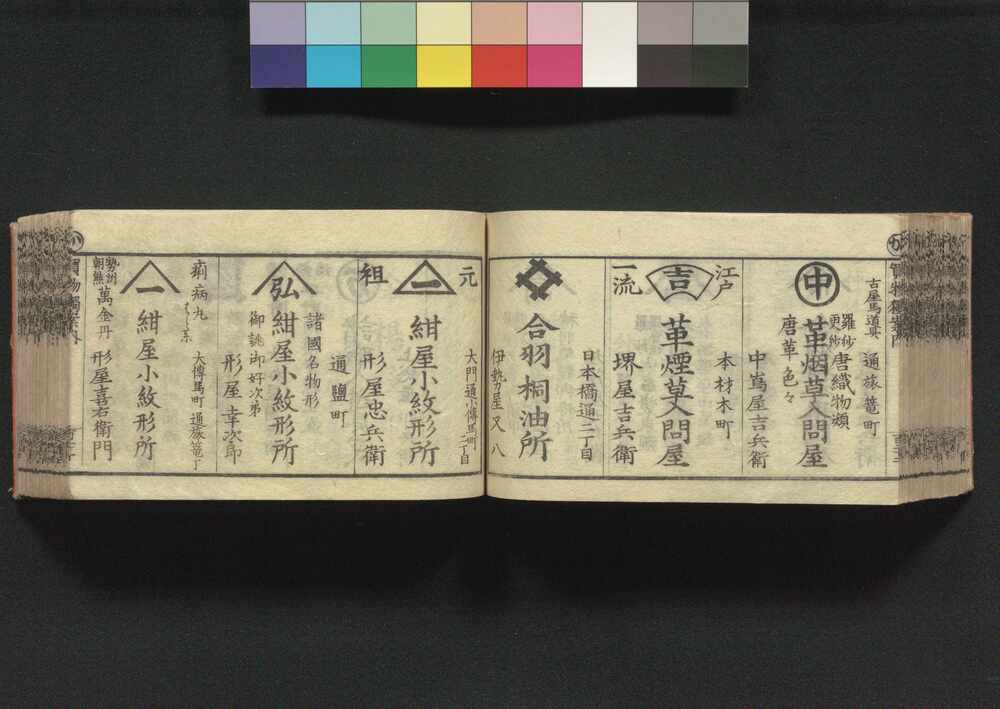 古屋馬道具
通旅篭町
羅紗
更紗
唐織物類
中
革烟草入問屋
唐革色々
中嶌屋吉兵衛
江戸
本材木町
吉
革煙草入問屋
一流
堺屋吉兵衛
日本橋通二丁目
合羽桐油所
伊勢屋又八
元
大門通小傳馬町
二丁目
一
紺屋小紋形所
祖
形屋忠兵衛
通鹽町
諸國名物形
弘
紺屋小紋形所
御誂御好次第
形屋幸次郎
痢病丸
大傳馬町
通旅篭丁
一
紺屋小紋形所
勢州
朝熊
萬金丹
形屋喜右衛門